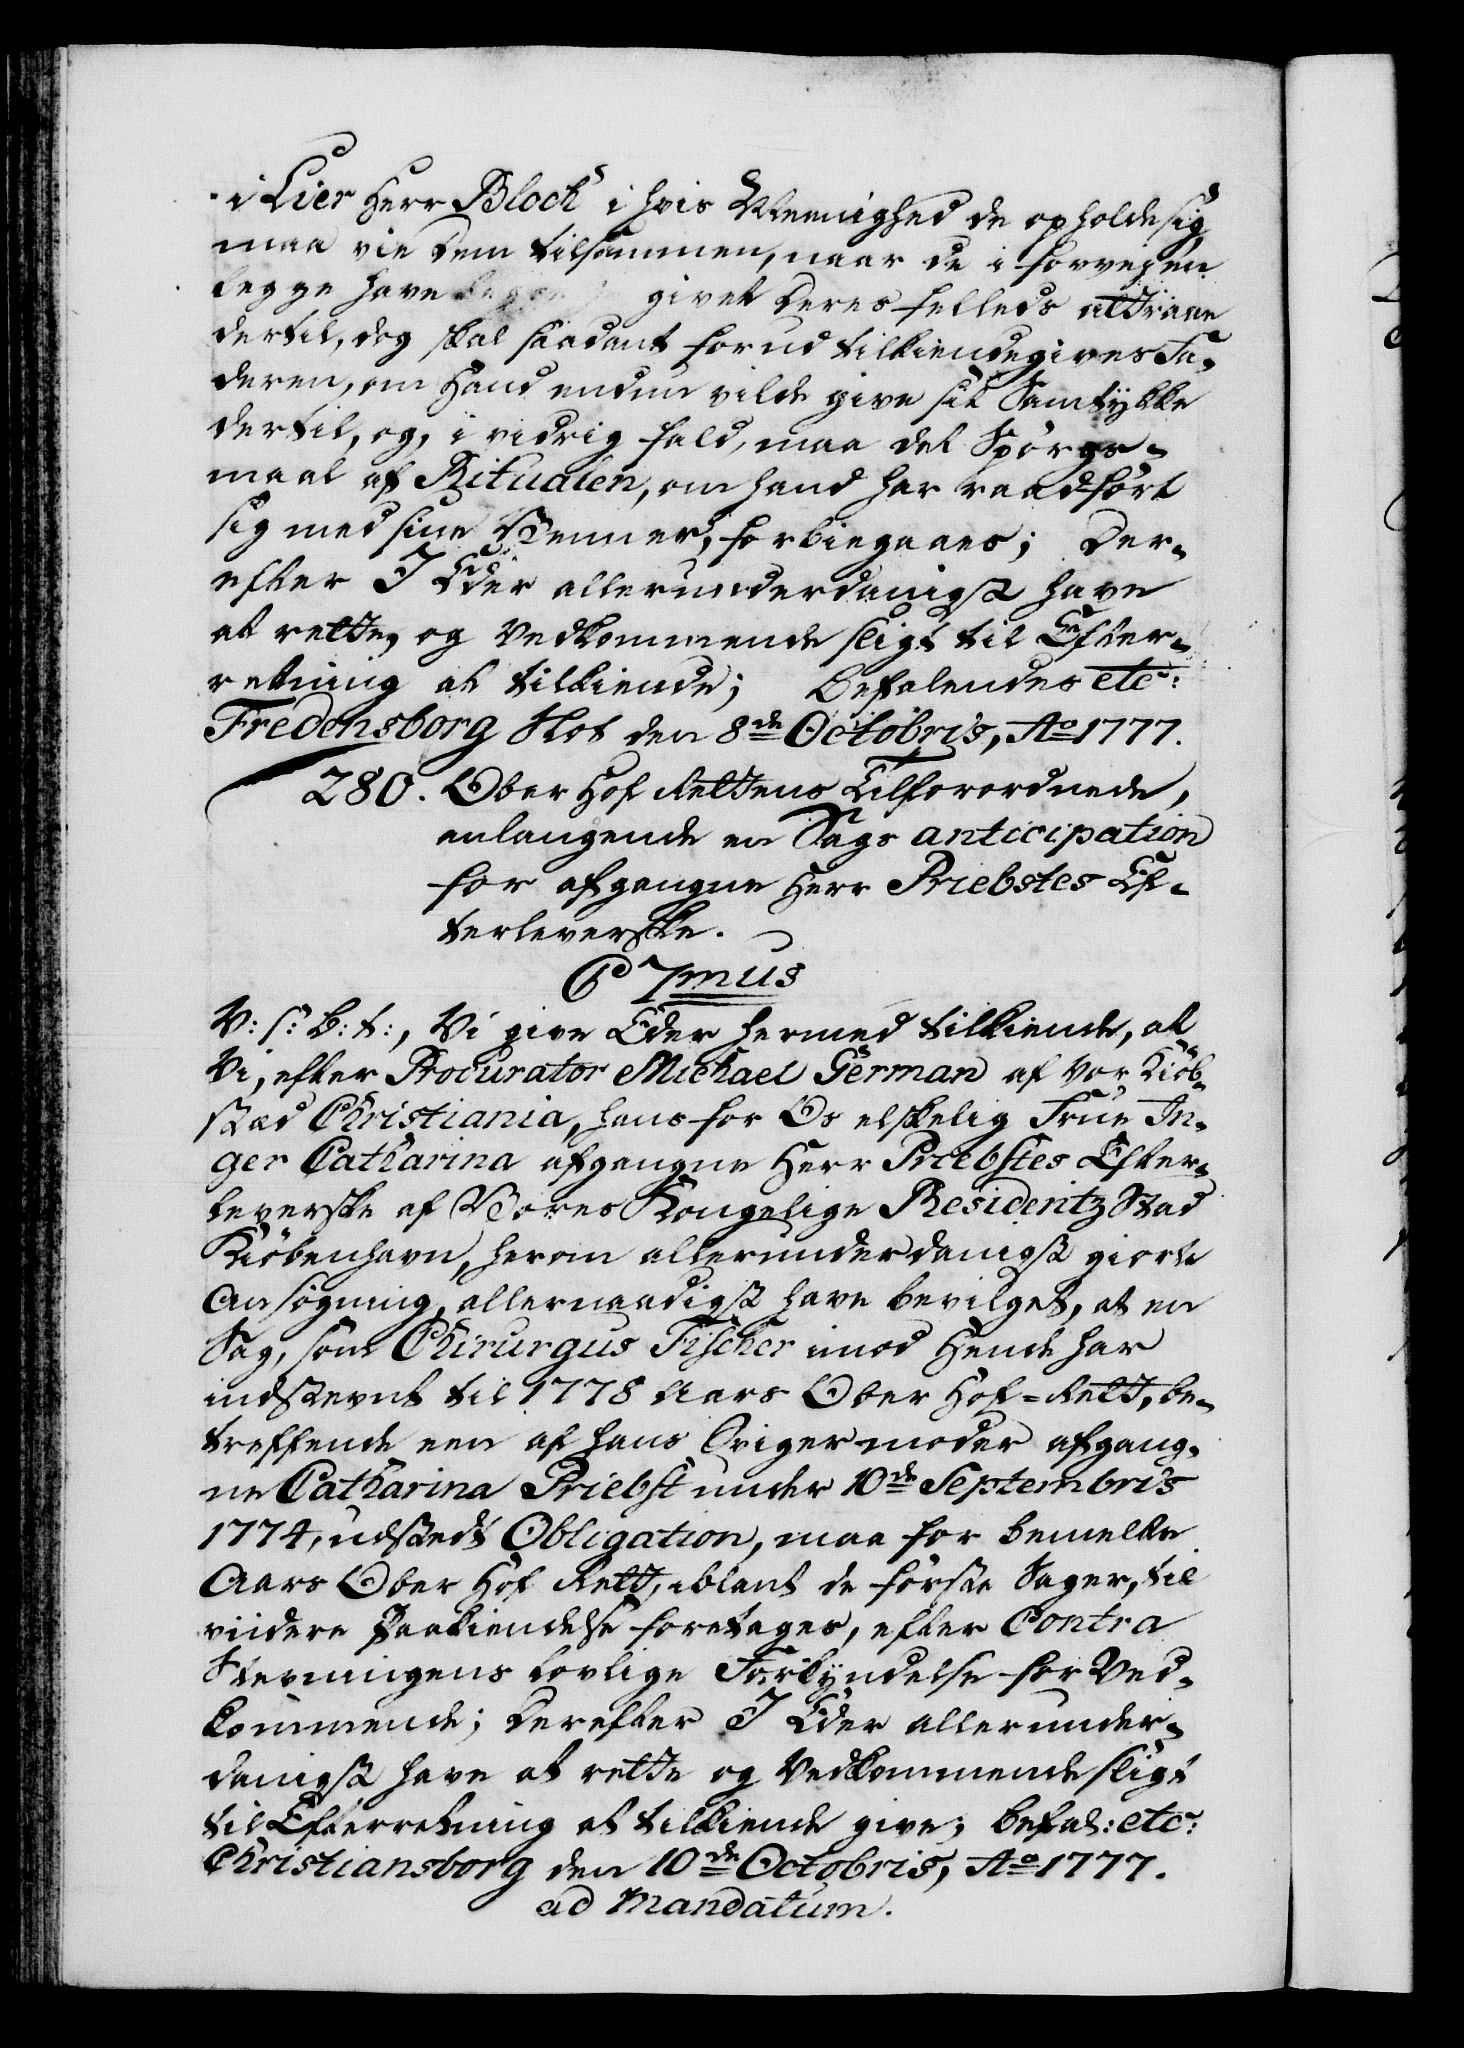 i Lier Herr Bloch i hvis Meenighed de opholde sig
maa vie dem tilsammen, naar de i forveyen
begge have givet deres felleds attraae
dertil, dog skal saadant forud tilkiendegives Fa-
deren, om Hand endnu vilde give sit Samtykke
dertil, og, i vidrig fald, maa det Spørgs-
maal af Ritualen, om hand har raadført
sig med sine Venner, forbiegaaes; Der-
efter I Eder allerunderdanigst have
at rette, og Vedkommende sligt til Efter-
retning at tilkiende; Befalendes etc:
Fredensborg Slot den 8de Octobris, Ao 1777.
280. Ober Hof Rettens Tilforordnede,
anlangende en Sags anticipation
for afgangne Herr Priebstes Ef-
terleverske.
C 7mus
V: s: b: t:, Vi give Eder hermed tilkiende, at
Vi, efter Procurator Michael German af vor Kiøb-
stæd Christiania, hans for Os elskelig Frue In-
ger Catharina afgangne Herr Priebstes Efter-
leverske af Vores Kongelige Residentz Stad
Kiøbenhavn, herom allerunderdanigst giorte
Ansøgning, allernaadigst have bevilget, at en
Sag, som Chirurgus Fischer imod Hende har
indstevnt til 1778 Aars Ober Hof-Rett, be-
treffende een af hans Svigermoder afgang-
ne Catharina Priebst under 10de Septembris
1774, udstedt Obligation, maa for bemelte
Aars Ober Hof Rett, iblant de første Sager, til
viidere Paakiendelse foretages, efter Contra
Stevningens lovlige Forkyndelse for Ved-
kommende; Derefter I Eder allerunder-
danigst have at rette og Vedkommende sligt
til Efterretning at tilkiende give; Befal: etc:
Christiansborg den 10de Octobris, Ao 1777.
ad Mandatum.